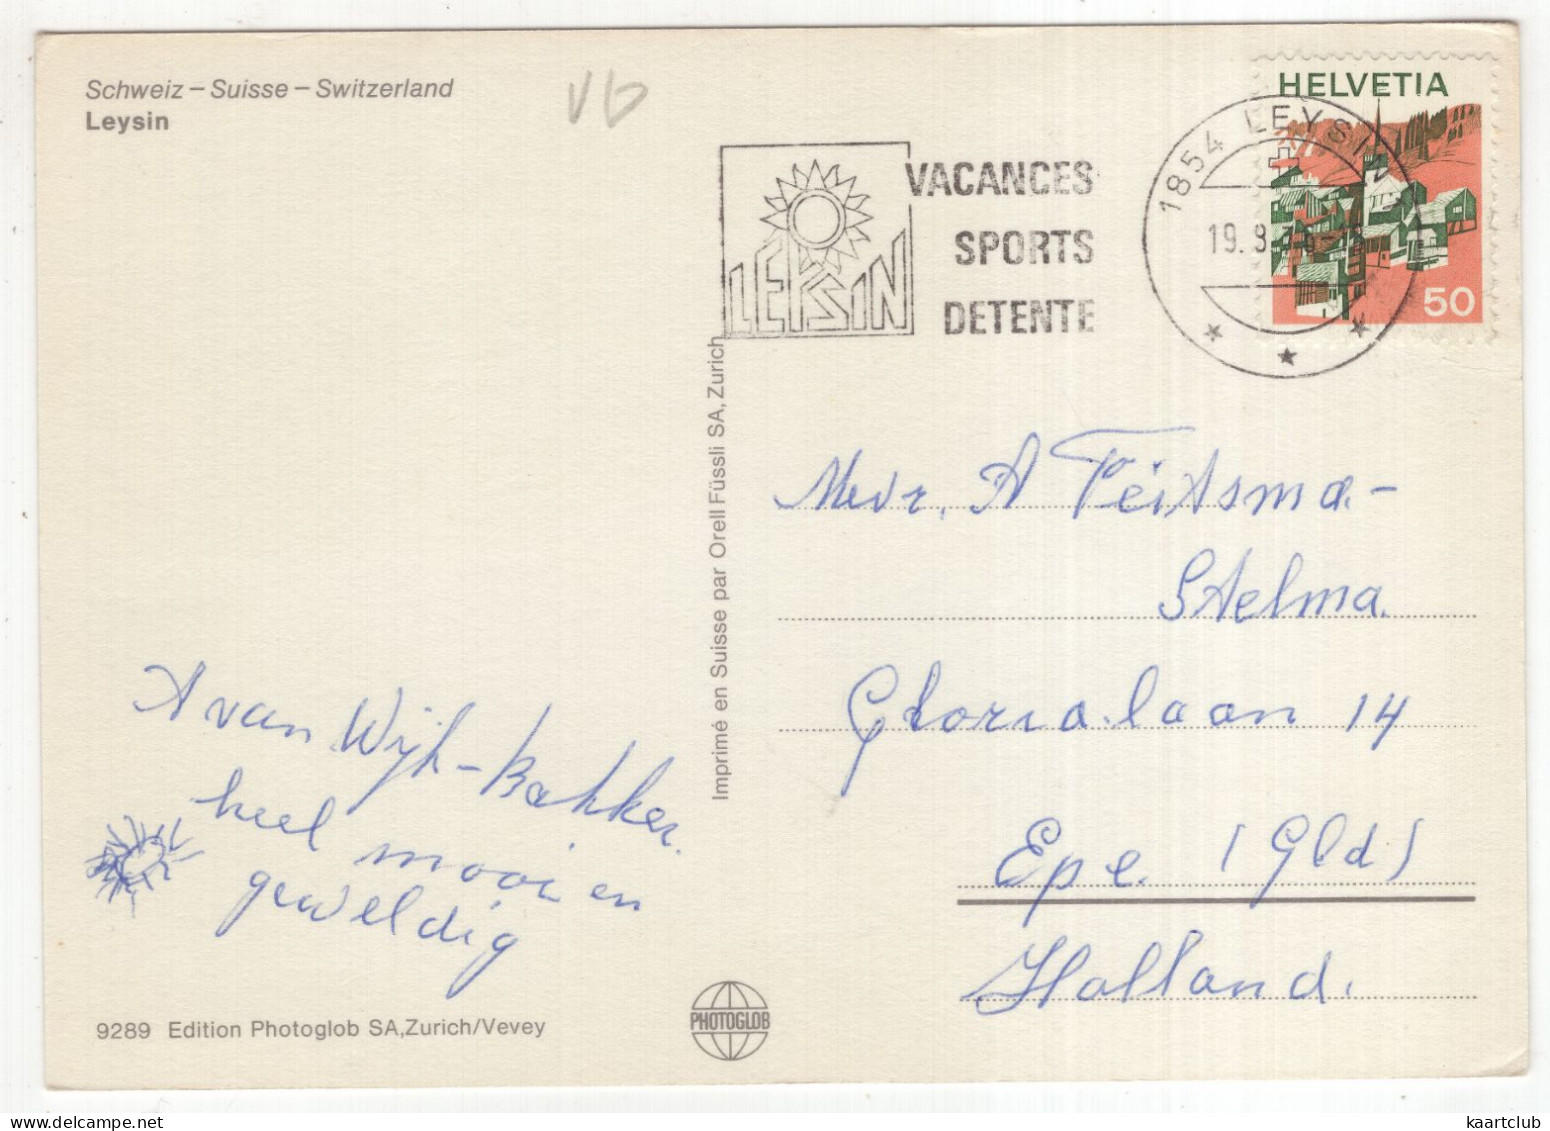 Schweiz – Suisse – Switzerland
Leysin
VACANCES
SPORTS
DETENTE
LEYSIN
1854 LEYSIN
HELVETIA
50
Imprimé en Suisse par Orell Füssli SA, Zurich
Mevr. A Feitsma-
Stelma.
Glorialaan 14
Epe (Gld)
Holland.
A van Wijk-Bakker.
heel mooi en
geweldig
9289 Edition Photoglob SA, Zurich/Vevey
PHOTOGLOB
kaartclub